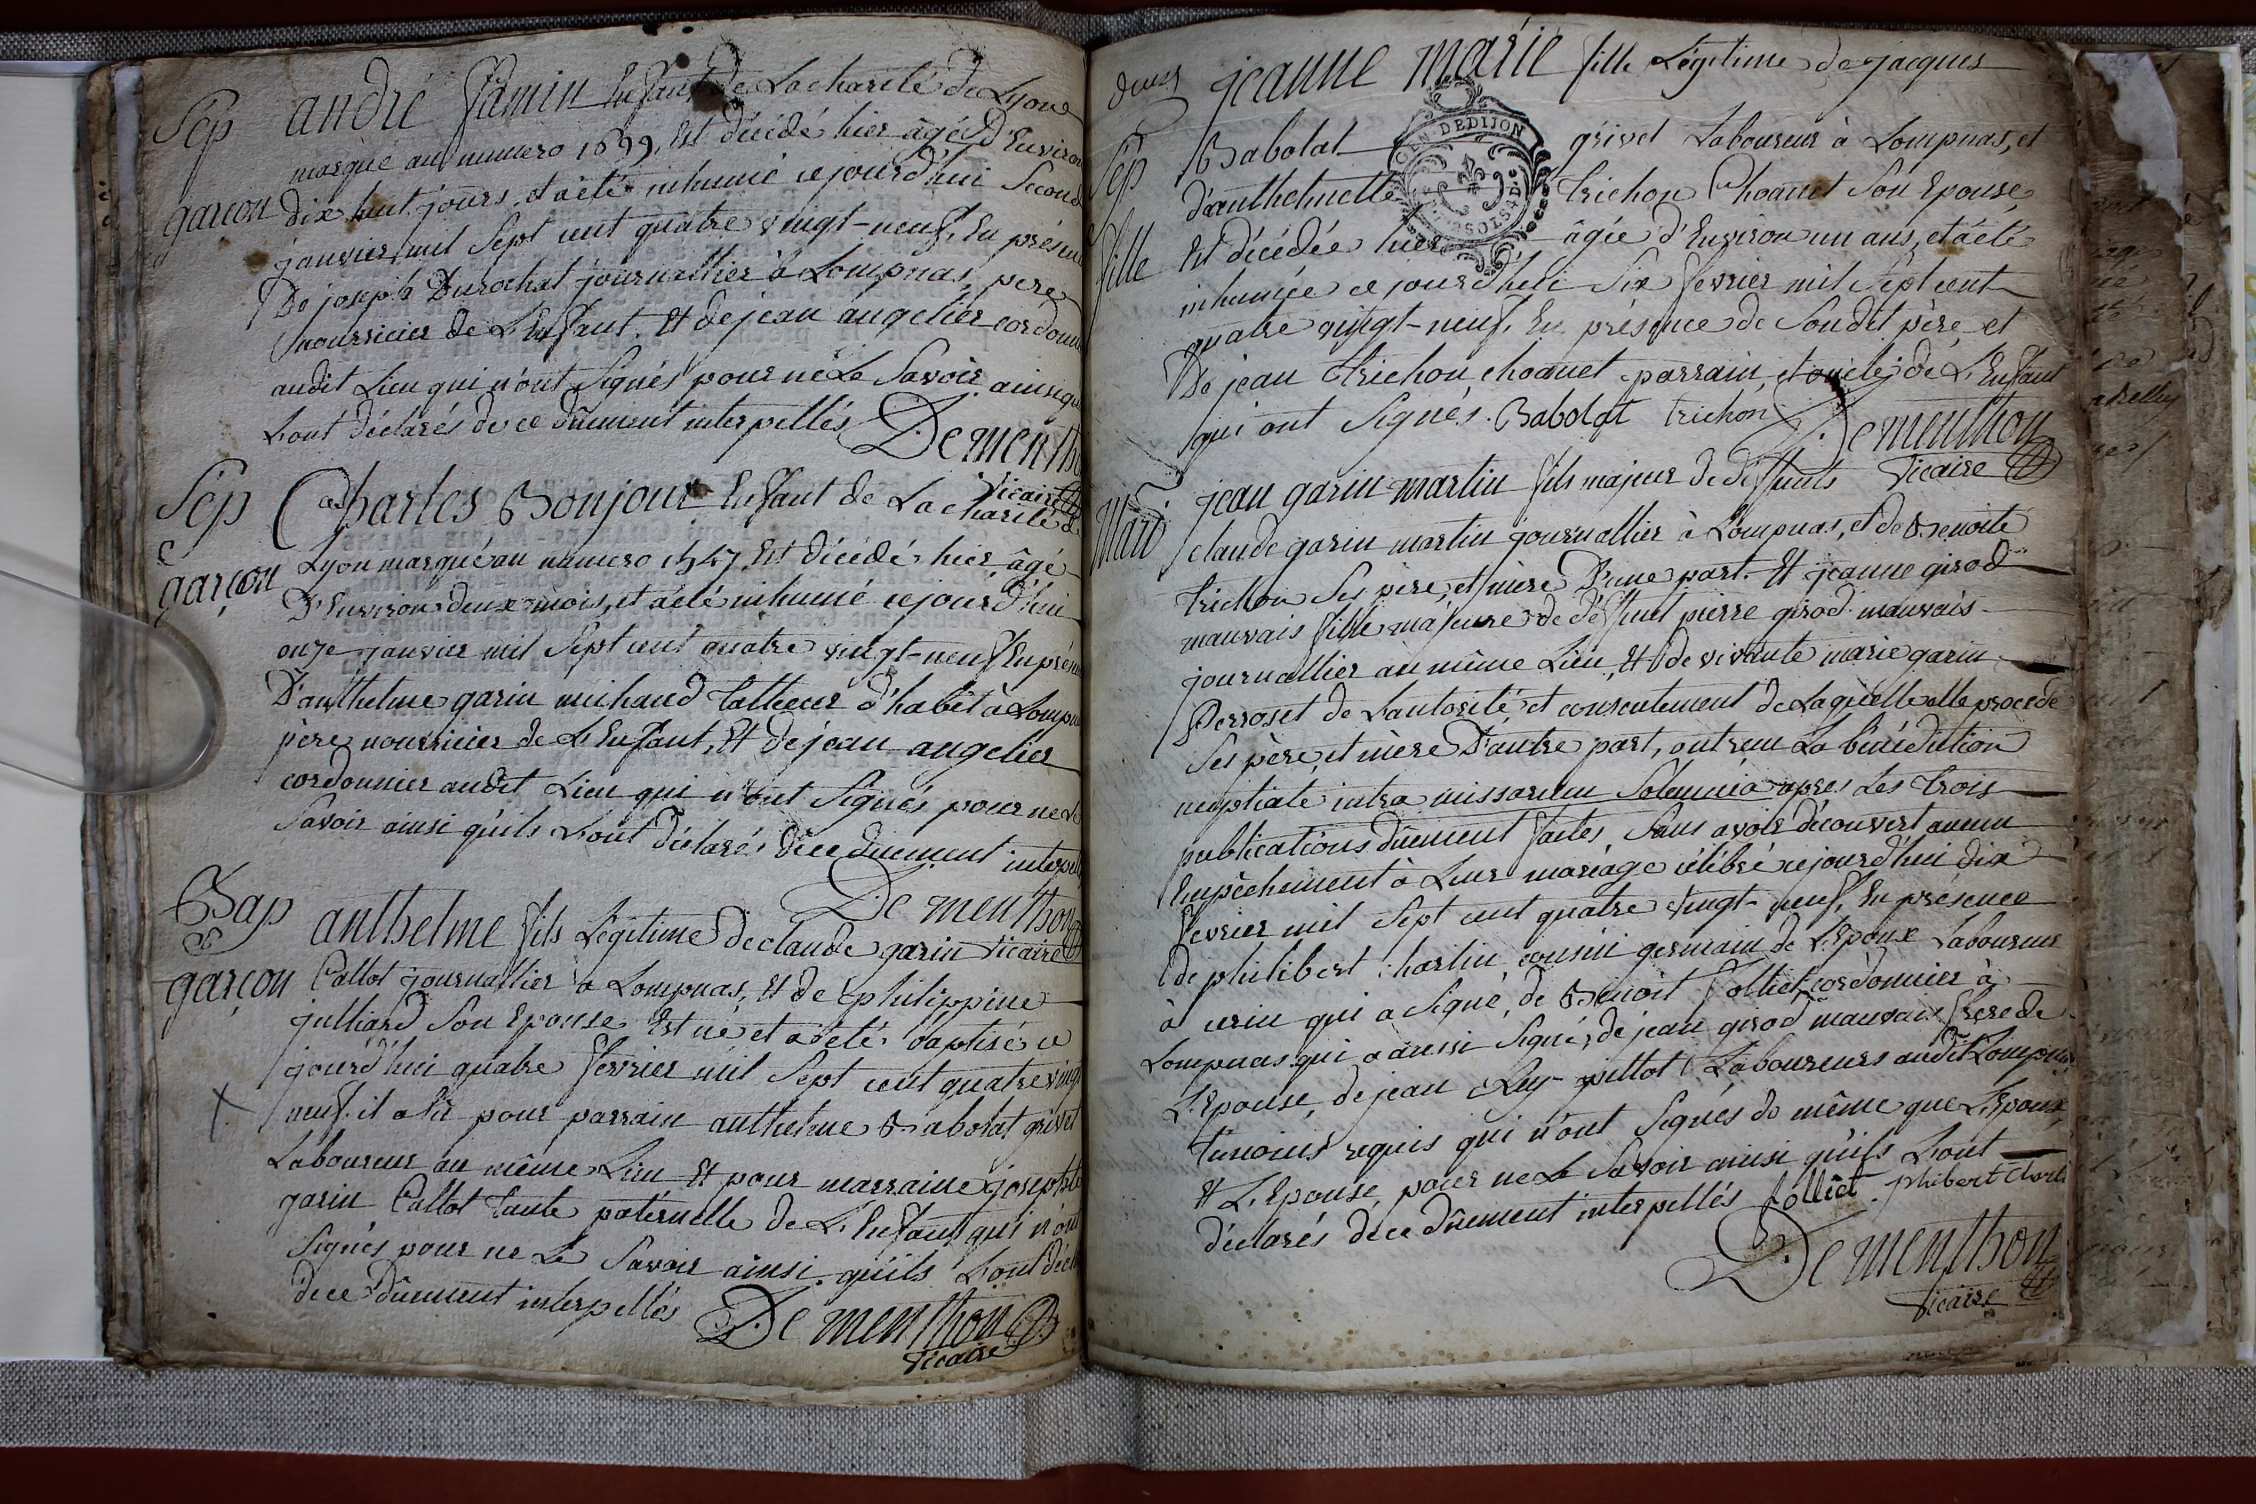 Sep andré famin Enfant de La charité de Lyon
marqué au numero 1699, Est décédé hier âgé d'Environ
garçon dix huit jours, et a été inhumé cejourd'hui second
janvier mil sept cent quatre vingt-neuf, En présence
De joseph Durochat journallier à Lompnas, pere
nourricier de L'Enfant, Et de jean angelier cordonn
audit Lieu qui n'ont signés pour ne Le savoir ainsi qu
L'ont déclarés de ce dûement interpellés Dementho
vicaire
Sep Charles Bonjour Enfant de La charité de
Lyon marqué au numero 1547 Est décédé hier âgé
garçon D'Environ deux mois, et a été inhumé cejourd'hui
onze janvier mil sept cent quatre vingt-neuf En présen
D'anthelme garin michaud tallieur d'habit à Lompn
père nourricier de L'Enfant, Et de jean angelier
cordonnier audit Lieu qui n'ont signés pour ne Le
savoir ainsi qu'ils L'ont déclarés de ce duement interpell
De menthon
vicaire
Bap
& anthelme fils Légitime de claude garin
garçon Callot journallier à Lompnas, Et de philippine
julliard son Epouse Est né et a été baptisé ce
jourd'hui quatre fevrier mil sept cent quatre vingt
neuf. il a Eû pour parrain anthelme Babolat grivet
Laboureur au même Lieu Et pour marraine josephte
garin Callot tante paternelle de L'Enfant qui n'ont
signés pour ne Le savoir ainsi qu'ils L'ont décla
de ce dûement interpellés De menthon
vicaire
deux jeanne marie fille Légitime de jacques
Sep Babolat grivet Laboureur à Lompnas, et
GEN. DE DIJON
d'anthelmette trichon Choanet son Epouse
fille Est décédée hier âgée d'Environ un ans, et a été
inhumée ce jourd'hui six fevrier mil sept cent
quatre vingt-neuf. En présence de son dit père et
De jean trichon choanet parrain, et oncle de L'Enfant
qui ont signés. Babolat trichon Dementhon
vicaire
Mari jean garin martin fils majeur de deffunts
claude garin martin journallier à Lompnas, et de Benoite
trichon ses père, et mère D'une part. Et jeanne girod
mauvais fille majeure de deffunt pierre girod mauvais
journallier au même Lieu, Et de vivante marie garin
Perroset de L'autorité et consentement de Laquelle elle procede
ses père, et mère D'autre part, ont reçu La bénédiction
nuptiale intra missarum solemnia apres Les trois
publications dûement faites sans avoir découvert aucun
Empêchement à Leur mariage célébré cejourd'hui dix
fevrier mil sept cent quatre vingt-neuf, En présence
de philibert charlin cousin germain de L'Epoux Laboureur
à cerin qui a signé, de Benoit folliet cordonnier à
Lompnas qui a aussi signé, de jean girod mauvais frere de
L'Epouse, de jean Rey-pillot Laboureurs audit Lompnas
temoins requis qui n'ont signés de même que L'Epoux
Et L'Epouse, pour ne Le savoir ainsi qu'ils L'ont
déclarés de ce dûement interpellés folliet. philibert Charl
De menthon
vicaire